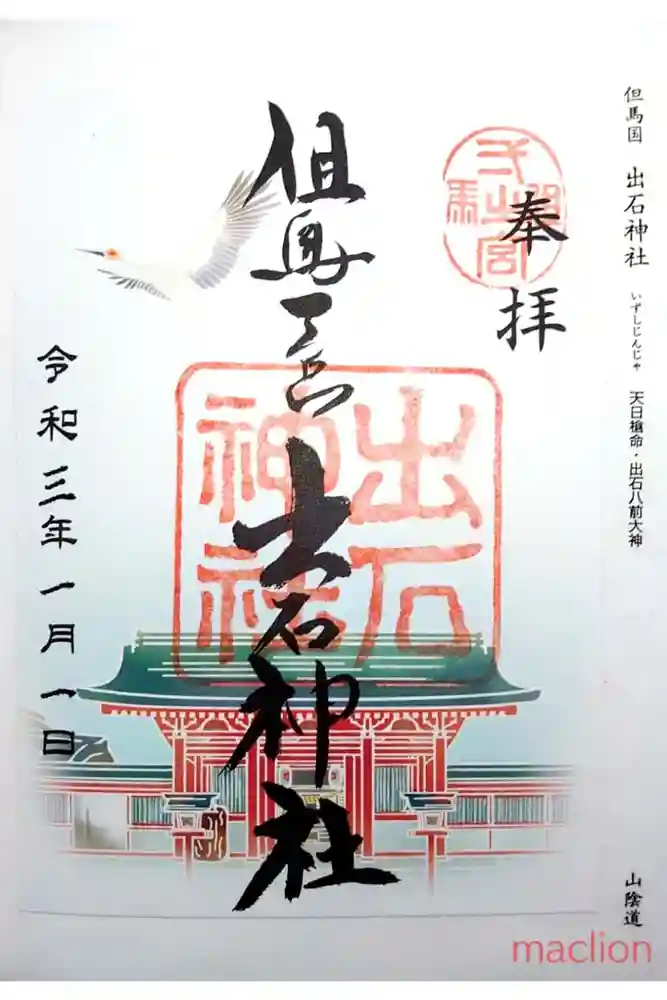 但馬国 出石神社 いずしじんじゃ 天日槍命・出石八前大神
山陰道
奉拝
但馬一宮
出石神社
出石
神社
令和三年一月一日
maclion